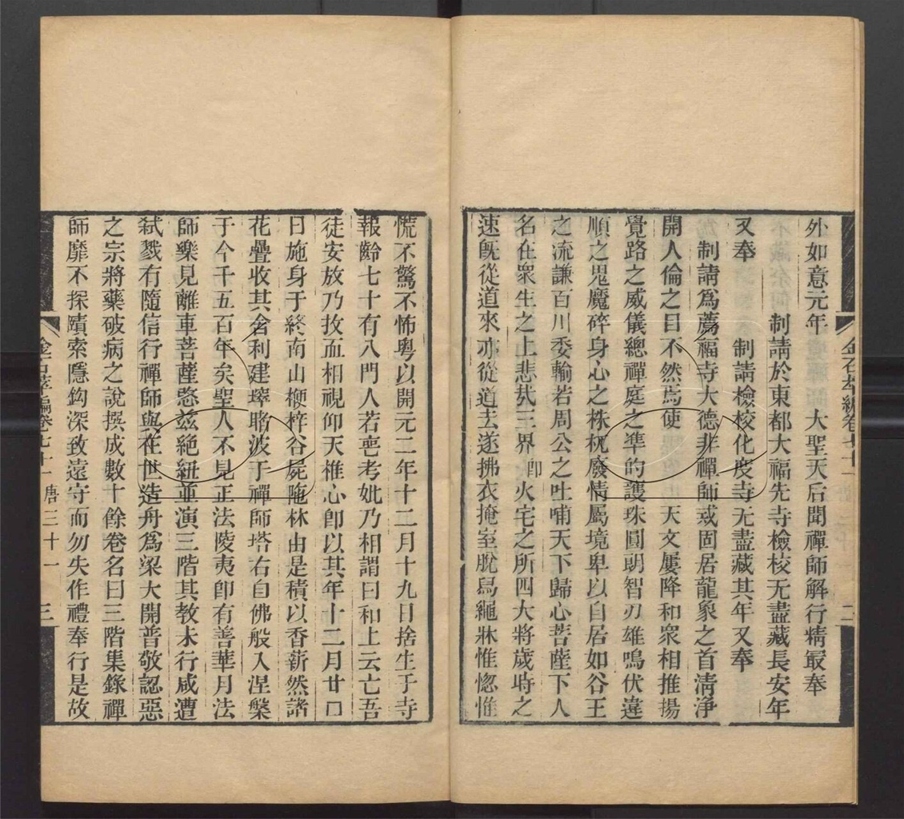 外如意元年　　大聖天后聞禪師解行精最奉
制請於東都大福先寺檢校无盡藏長安年
又奉　　制請檢校化度寺无盡藏其年又奉
制請為薦福寺大德非禪師戒固居龍象之首清淨
開人倫之目不然焉使　　天文屢降和衆相推揚
覺路之威儀總禪庭之準的護珠圓朗智刃雄鳴伏違
順之鬼魔碎身心之株杌廢情屬境卑以自居如谷王
之流謙百川委輸若周公之吐哺天下歸心菩薩下人
名在衆生之上悲哉三界卽火宅之所四大將歲時之
速旣從道來亦從道去遂拂衣掩室脫舄繩牀惟惚惟
金石萃編卷七十一　二
慌不驚不怖粵以開元二年十二月十九日捨生于寺
報齡七十有八門人若喪考妣乃相謂曰和上云亡吾
徒安放乃抆血相視仰天椎心卽以其年十二月廿口
日施身于終南山楩梓谷屍陁林由是積以香薪然諸
花疊收其舍利建塔于禪師塔右自佛般入涅槃
于今千五百年矣聖人不見正法陵夷卽有善華月法
師樂見離車菩薩愍兹絶紐並演三階其教未行咸遭
弑戮有隨信行禪師與在世造舟為梁大開普敬認惡
之宗將藥破病之說撰成數十餘卷名曰三階集錄禪
師靡不探賾索隱鈎深致遠守而勿失作禮奉行是故
金石萃編卷七十一　唐三十一　三